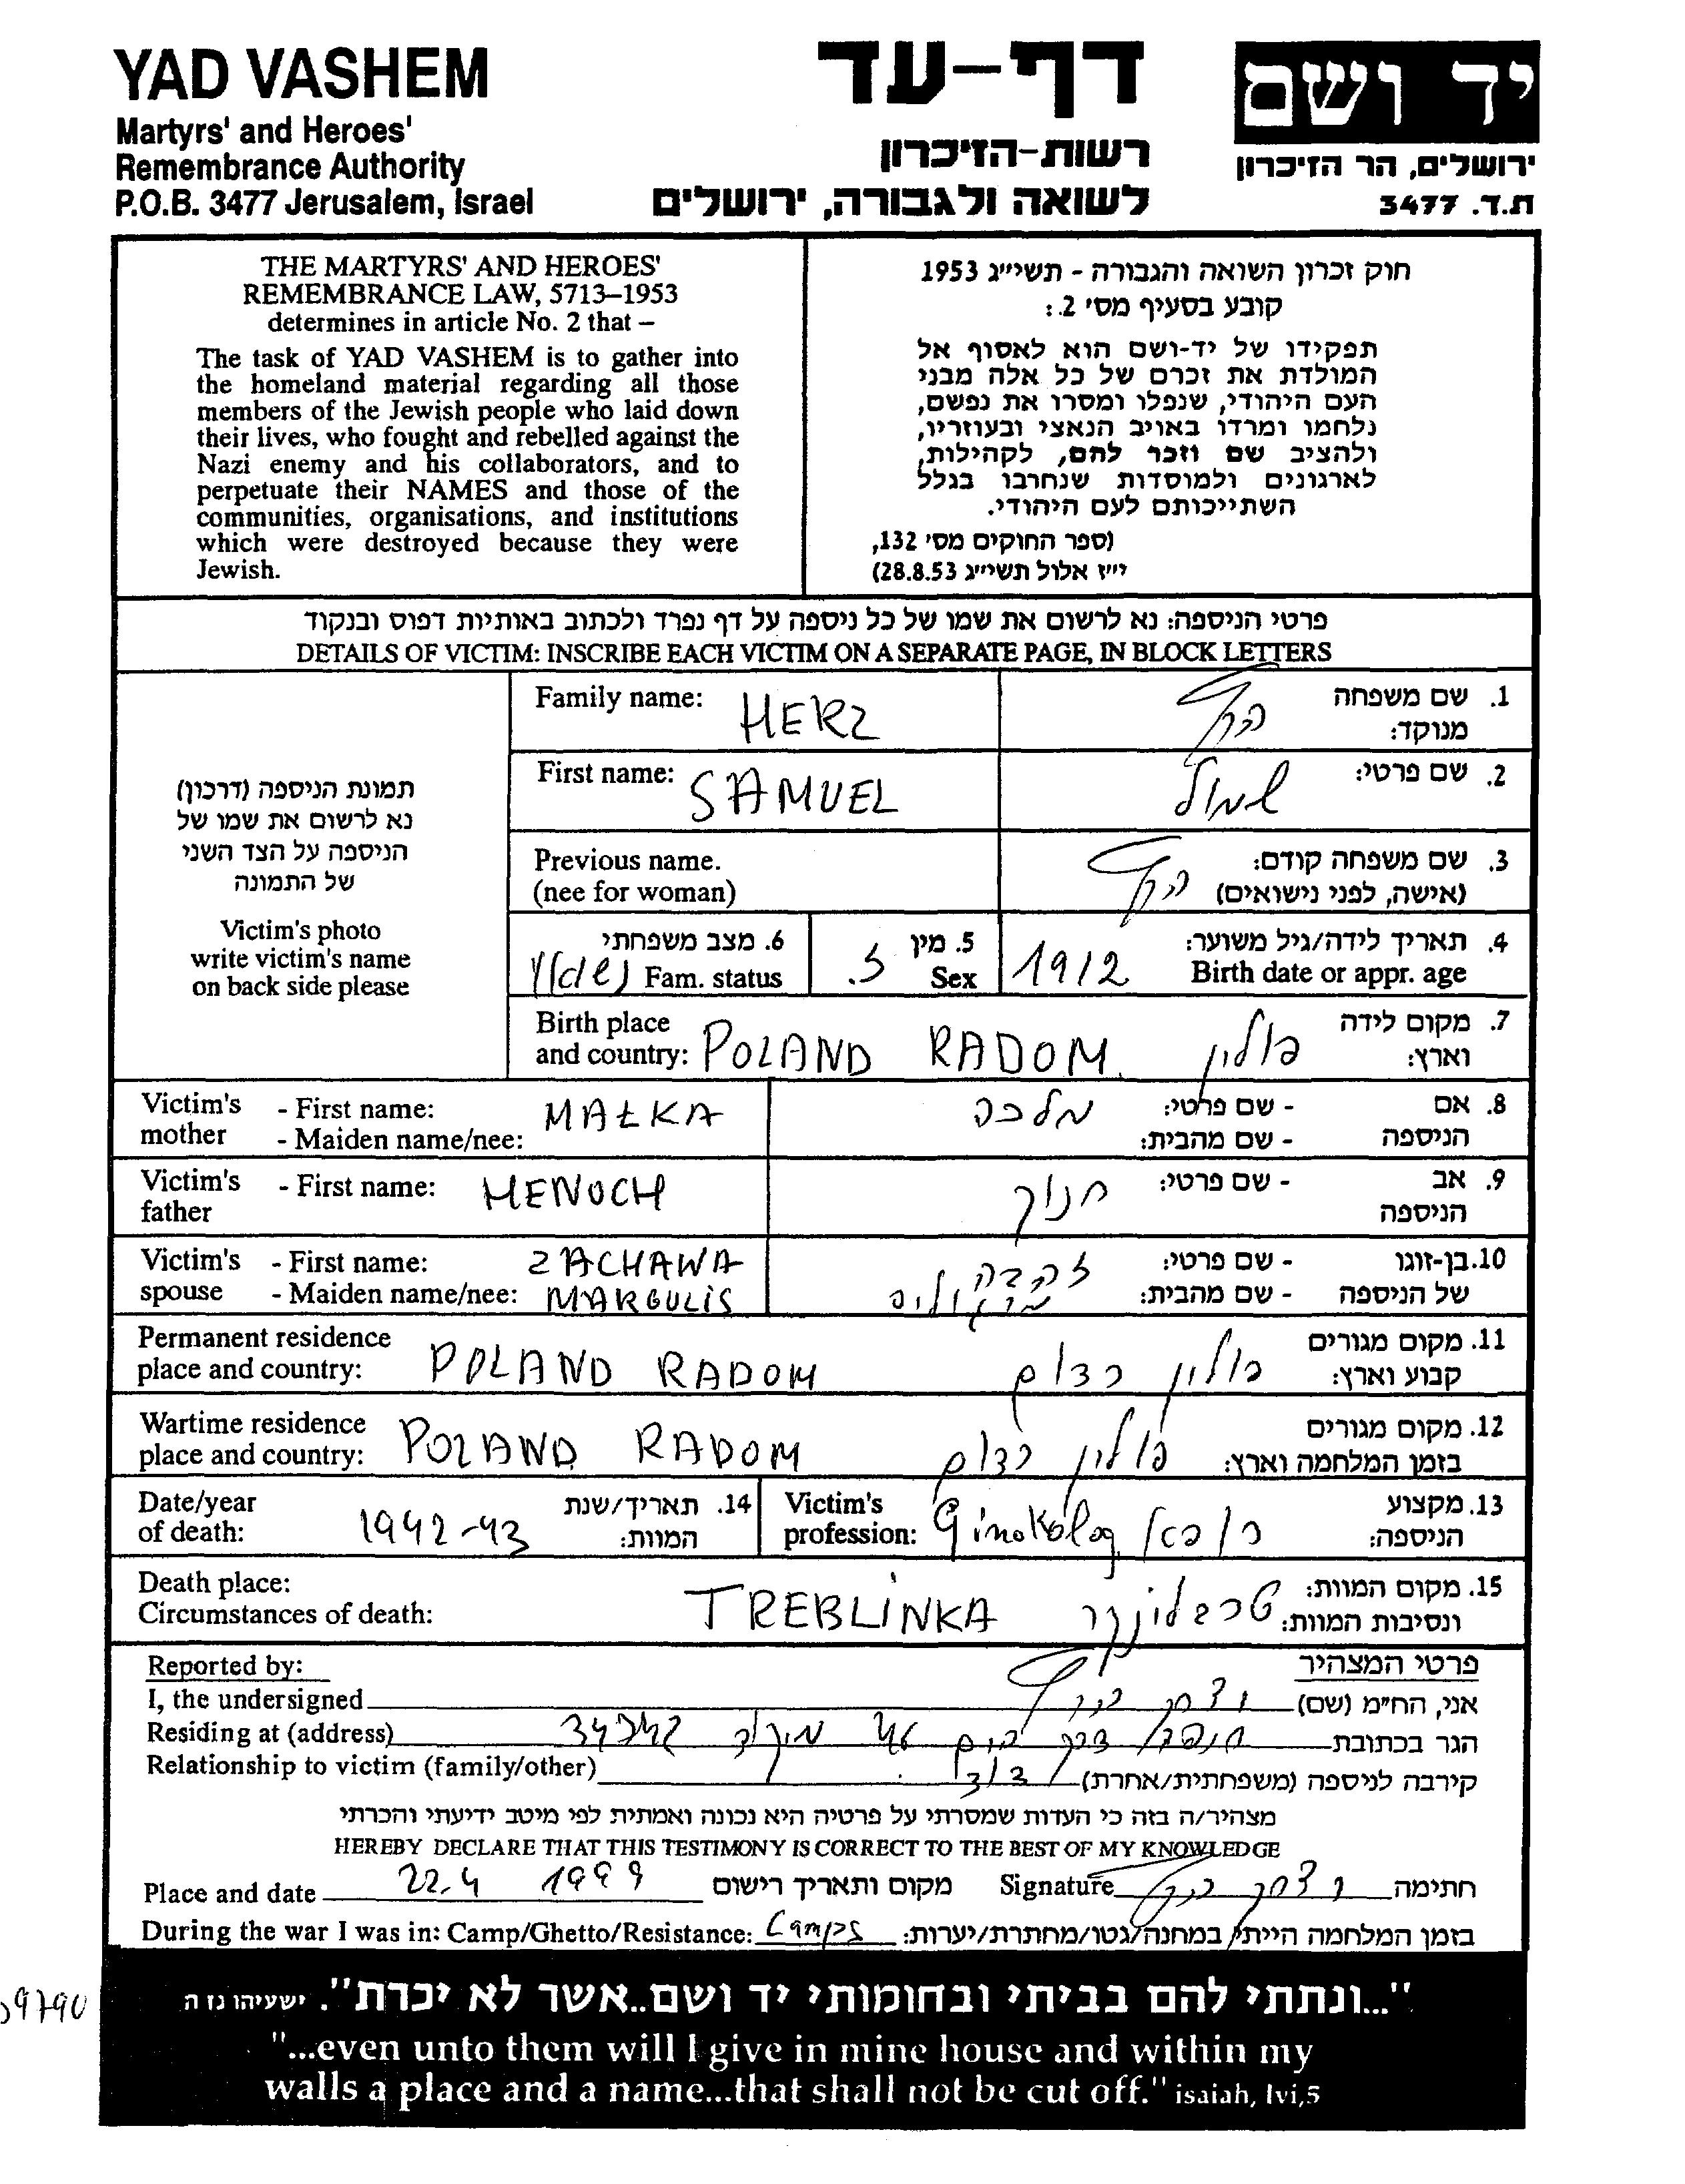 YAD VASHEM
Martyrs' and Heroes'
Remembrance Authority
P.O.B. 3477 Jerusalem, Israel
דף-עד
רשות-הזיכרון
לשואה ולגבורה, ירושלים
יד ושם
ירושלים, הר הזיכרון
ת.ד. 3477
THE MARTYRS' AND HEROES'
REMEMBRANCE LAW, 5713–1953
determines in article No. 2 that –
The task of YAD VASHEM is to gather into
the homeland material regarding all those
members of the Jewish people who laid down
their lives, who fought and rebelled against the
Nazi enemy and his collaborators, and to
perpetuate their NAMES and those of the
communities, organisations, and institutions
which were destroyed because they were
Jewish.
חוק זכרון השואה והגבורה - תשי״ג 1953
קובע בסעיף מס׳ 2.:
תפקידו של יד-ושם הוא לאסוף אל
המולדת את זכרם של כל אלה מבני
העם היהודי, שנפלו ומסרו את נפשם,
נלחמו ומרדו באויב הנאצי ובעוזריו,
ולהציב שם וזכר להם, לקהילות,
לארגונים ולמוסדות שנחרבו בגלל
השתייכותם לעם היהודי.
(ספר החוקים מס׳ 132,
י״ז אלול תשי״ג 28.8.53)
פרטי הניספה: נא לרשום את שמו של כל ניספה על דף נפרד ולכתוב באותיות דפוס ובנקוד
DETAILS OF VICTIM: INSCRIBE EACH VICTIM ON A SEPARATE PAGE, IN BLOCK LETTERS
תמונת הניספה (דרכון)
נא לרשום את שמו של
הניספה על הצד השני
של התמונה
Victim's photo
write victim's name
on back side please
Family name: HERZ הרץ 1. שם משפחה
מנוקד:
First name: SAMUEL שמואל 2. שם פרטי:
Previous name. הרץ 3. שם משפחה קודם:
(nee for woman) (אישה, לפני נישואים)
6. מצב משפחתי 5. מין 1912 4. תאריך לידה/גיל משוער:
Fam. status ז. Sex Birth date or appr. age
Birth place 7. מקום לידה
and country: POLAND RADOM פולין וארץ:
Victim's - First name: MAŁKA מלכה - שם פרטי: 8. אם
mother - Maiden name/nee: - שם מהבית: הניספה
Victim's - First name: HENOCH חנוך - שם פרטי: 9. אב
father הניספה
Victim's - First name: ZACHAWA זהבה - שם פרטי: 10. בן-זוגו
spouse - Maiden name/nee: MARGULIS מרגוליס - שם מהבית: של הניספה
Permanent residence 11. מקום מגורים
place and country: POLAND RADOM פולין רדום קבוע וארץ:
Wartime residence 12. מקום מגורים
place and country: POLAND RADOM פולין רדום בזמן המלחמה וארץ:
Date/year 14. תאריך/שנת Victim's 13. מקצוע
of death: 1942-43 המוות: profession: Ginokolog רופא הניספה:
Death place: 15. מקום המוות:
Circumstances of death: TREBLINKA טרבלינקה ונסיבות המוות:
Reported by: פרטי המצהיר
I, the undersigned הרץ אני, הח״מ (שם)
Residing at (address) חיפה דרך הים הגר בכתובת
Relationship to victim (family/other) דוד קירבה לניספה (משפחתית/אחרת)
מצהיר/ה בזה כי העדות שמסרתי על פרטיה היא נכונה ואמתית לפי מיטב ידיעתי והכרתי
HEREBY DECLARE THAT THIS TESTIMONY IS CORRECT TO THE BEST OF MY KNOWLEDGE
Place and date 22.4 1999 מקום ותאריך רישום Signature הרץ חתימה
During the war I was in: Camp/Ghetto/Resistance: Camps בזמן המלחמה הייתי במחנה/גטו/מחתרת/יערות:
"...ונתתי להם בביתי ובחומותי יד ושם..אשר לא יכרת". ישעיהו נז ה
"...even unto them will I give in mine house and within my
walls a place and a name...that shall not be cut off." isaiah, lvi,5